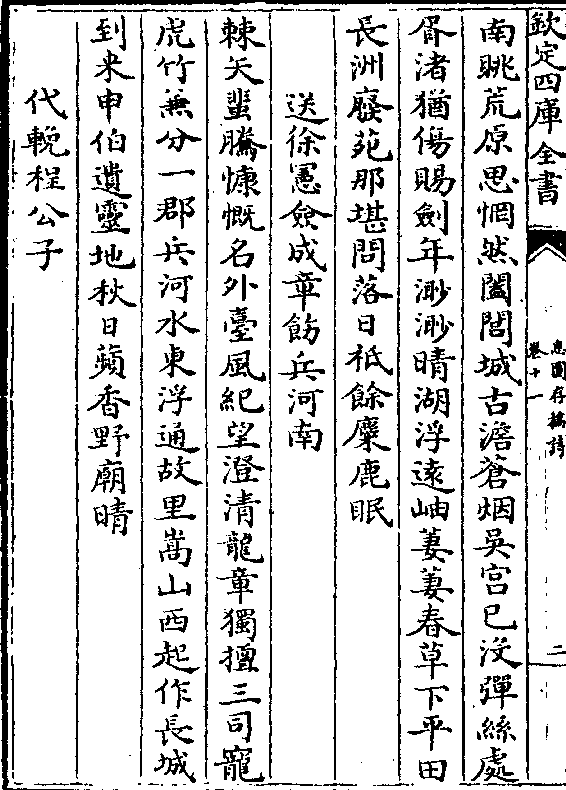 欽定四庫全書
息園存稿詩
卷十一
二
南眺荒原思惘然闔閭城古澹蒼烟吳宮已没彈絲處
胥渚猶傷賜劍年渺渺晴湖浮遠岫萋萋春草下平田
長洲廢苑那堪問落日祇餘麋鹿眠
送徐憲僉成章飭兵河南
棘矢蜚騰慷慨名外臺風紀望澄清龍章獨擅三司寵
虎竹兼分一郡兵河水東浮通故里嵩山西起作長城
到来申伯遺靈地秋日蘋香野廟晴
代輓程公子